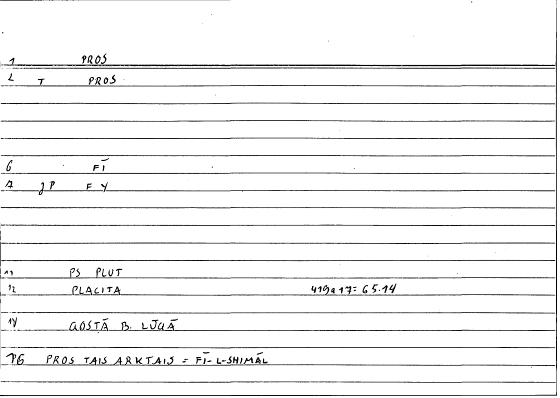 1 PROS
2 T PROS
6 FĪ
7 JP F Y
11 PS PLUT
12 PLACITA 419a17= 65.14
14 QOSTĀ B. LŪQĀ
16 PROS TAIS ARKTAIS = FĪ-L-SHIMĀL